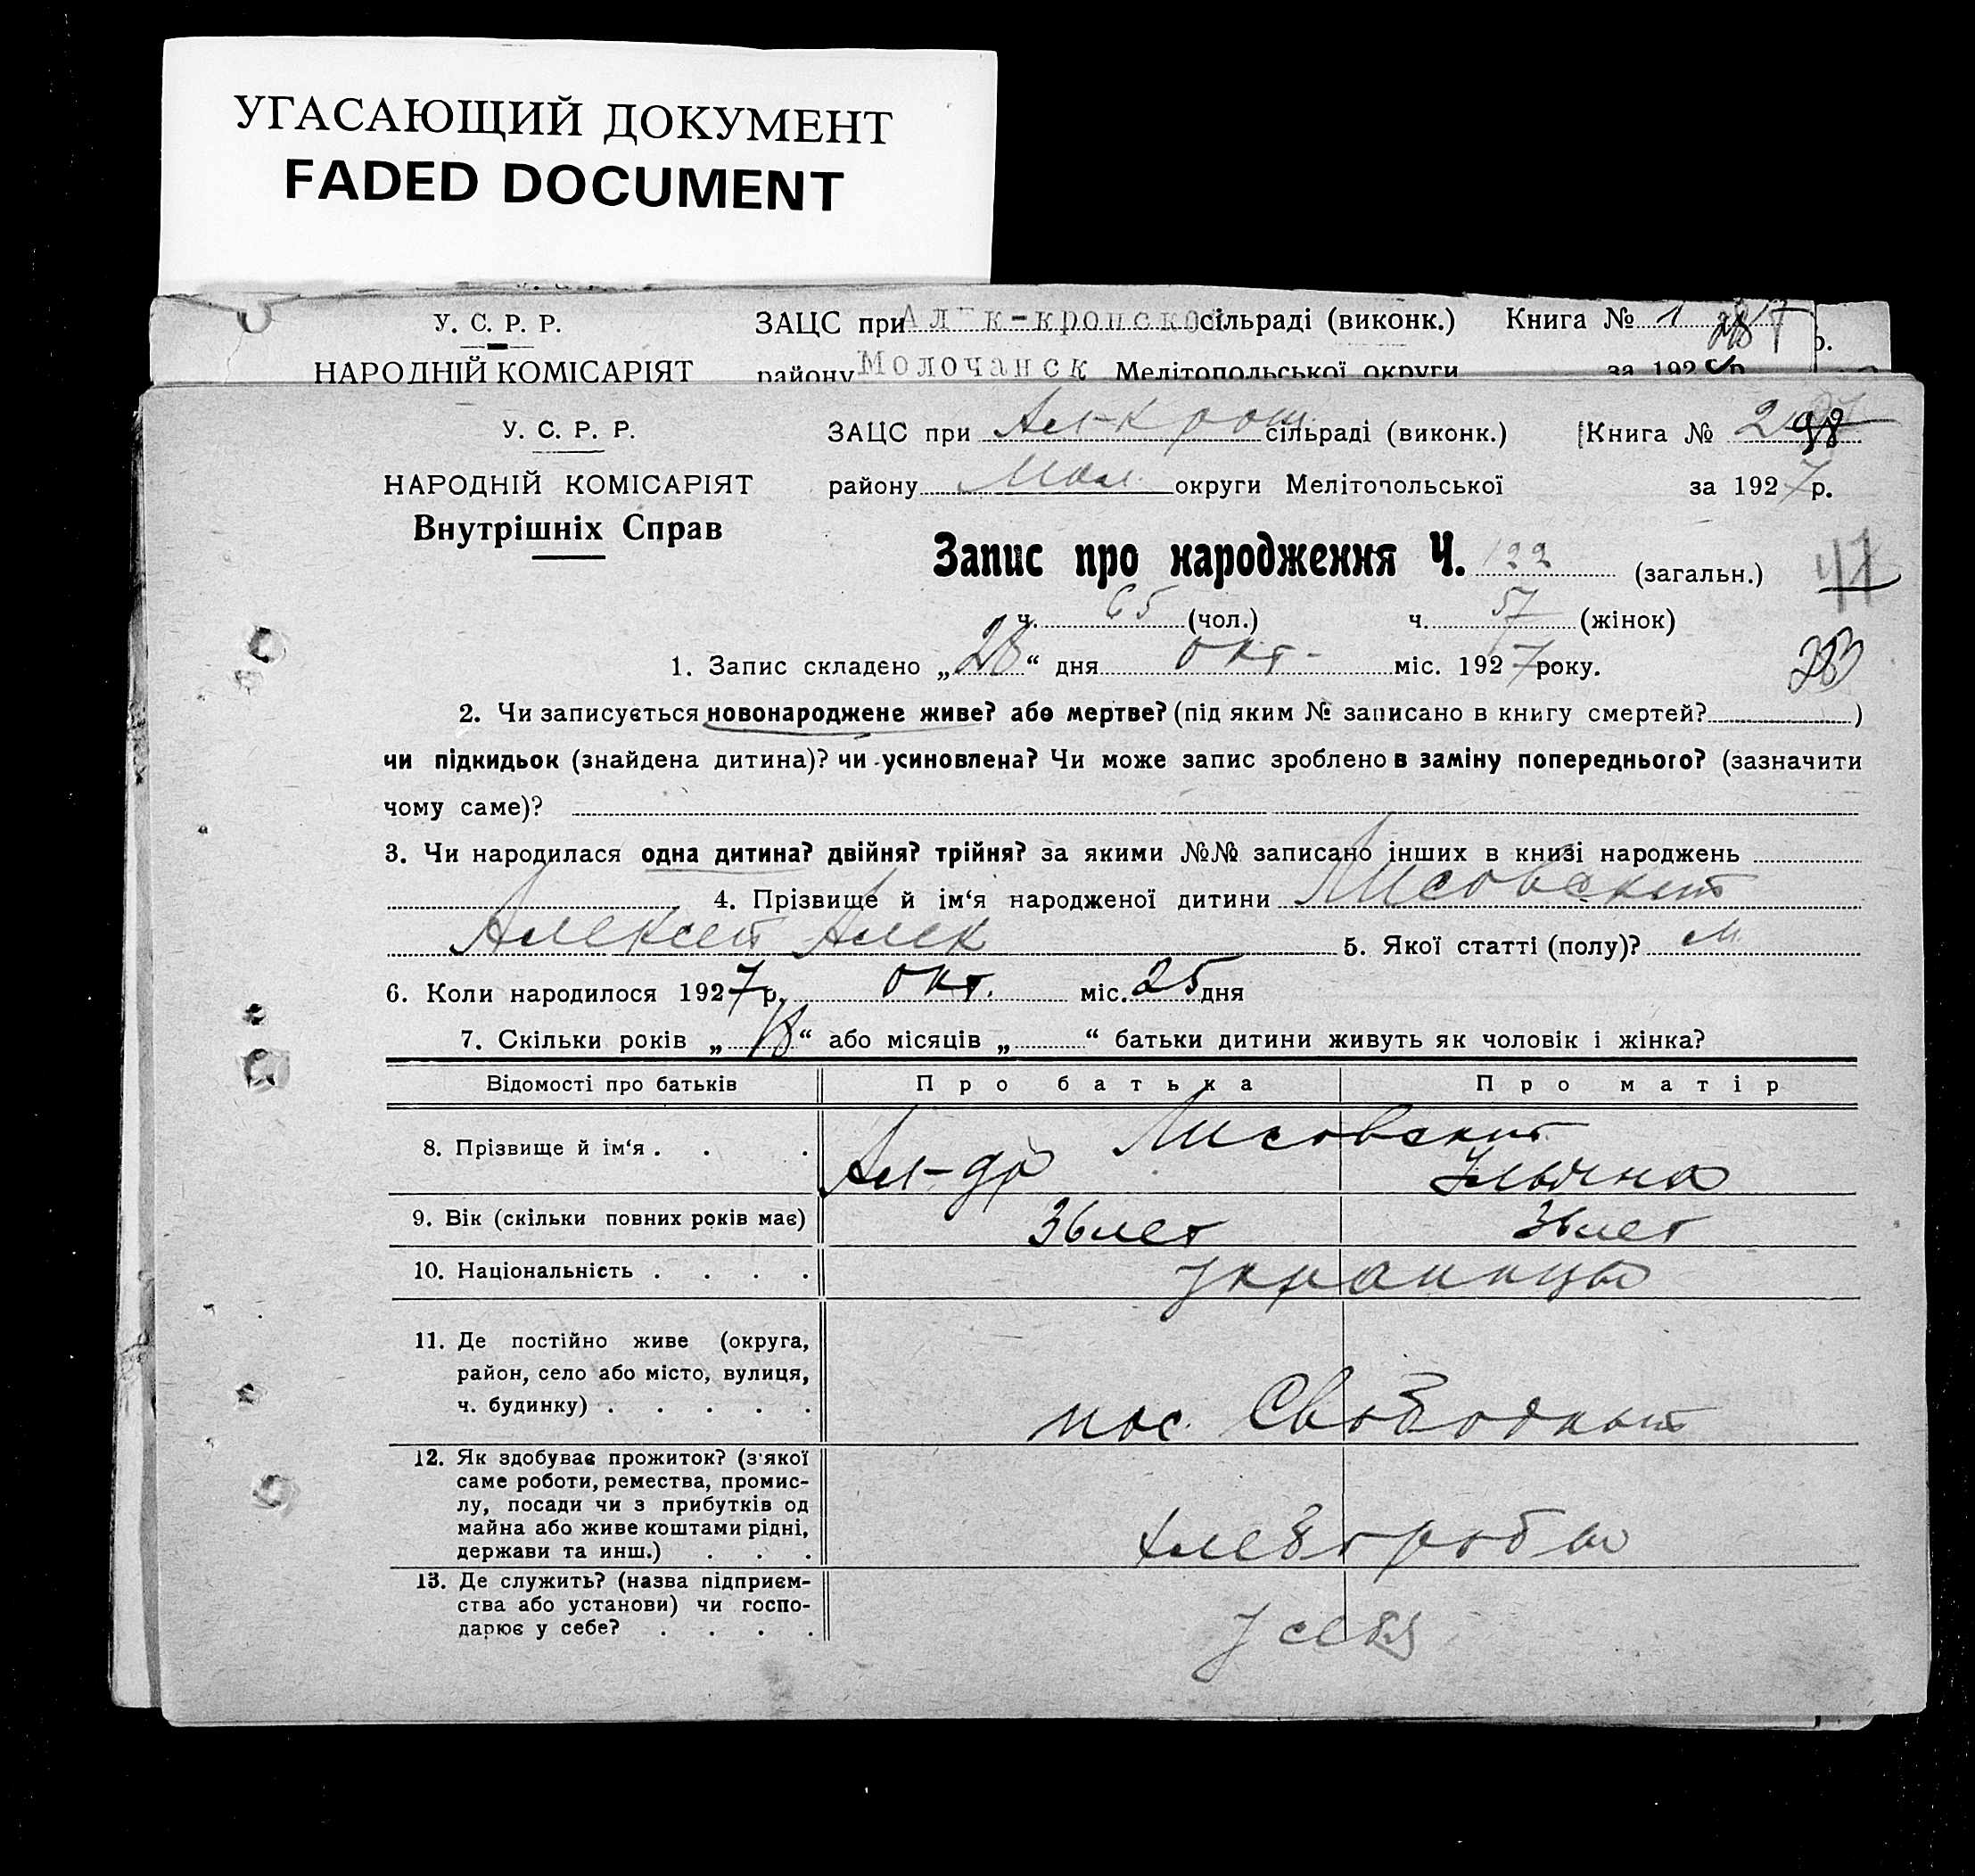 УГАСАЮЩИЙ ДОКУМЕНТ
FADED DOCUMENT
У. С. Р. Р. ЗАЦС при Ал-к-кропско сільраді (виконк.) Книга № 1
НАРОДНІЙ КОМІСАРІЯТ району Молочанск Мелітопольської округи за 192 р.
У. С. Р. Р. ЗАЦС при Ал-кроп сільраді (виконк.) Книга № 2 98
НАРОДНІЙ КОМІСАРІЯТ району Мол. округи Мелітопольської за 1927 р.
Внутрішніх Справ
Запис про народження Ч. 122 (загальн.) 47
ч. 65 (чол.) ч. 57 (жінок)
1. Запис складено „28“ дня окт. міс. 1927 року. 283
2. Чи записується новонароджене живе? або мертве? (під яким № записано в книгу смертей? )
чи підкидьок (знайдена дитина)? чи усиновлена? Чи може запис зроблено в заміну попереднього? (зазначити
чому саме)?
3. Чи народилася одна дитина? двійня? трійня? за якими №№ записано інших в книзі народжень
4. Прізвище й ім‘я народженої дитини Лисовский
Алексей Алек 5. Якої статті (полу)? м.
6. Коли народилося 1927 р. окт. міс. 25 дня
7. Скільки років „18“ або місяців „ “ батьки дитини живуть як чоловік і жінка?
Відомості про батьків Про батька Про матір
8. Прізвище й ім‘я . . . Лисовский
Ал-др Ульяна
9. Вік (скільки повних років має) 36 лет 36 лет
10. Національність . . . . украинцы
11. Де постійно живе (округа,
район, село або місто, вулиця,
ч. будинку) . . . . . пос. Свободный
12. Як здобуває прожиток? (з'якої
саме роботи, ремества, промис-
лу, посади чи з прибутків од
майна або живе коштами рідні,
держави та инш.) . . . хлеборобы
13. Де служить? (назва підприєм-
ства або установи) чи госпо-
дарює у себе? . . . . у себя